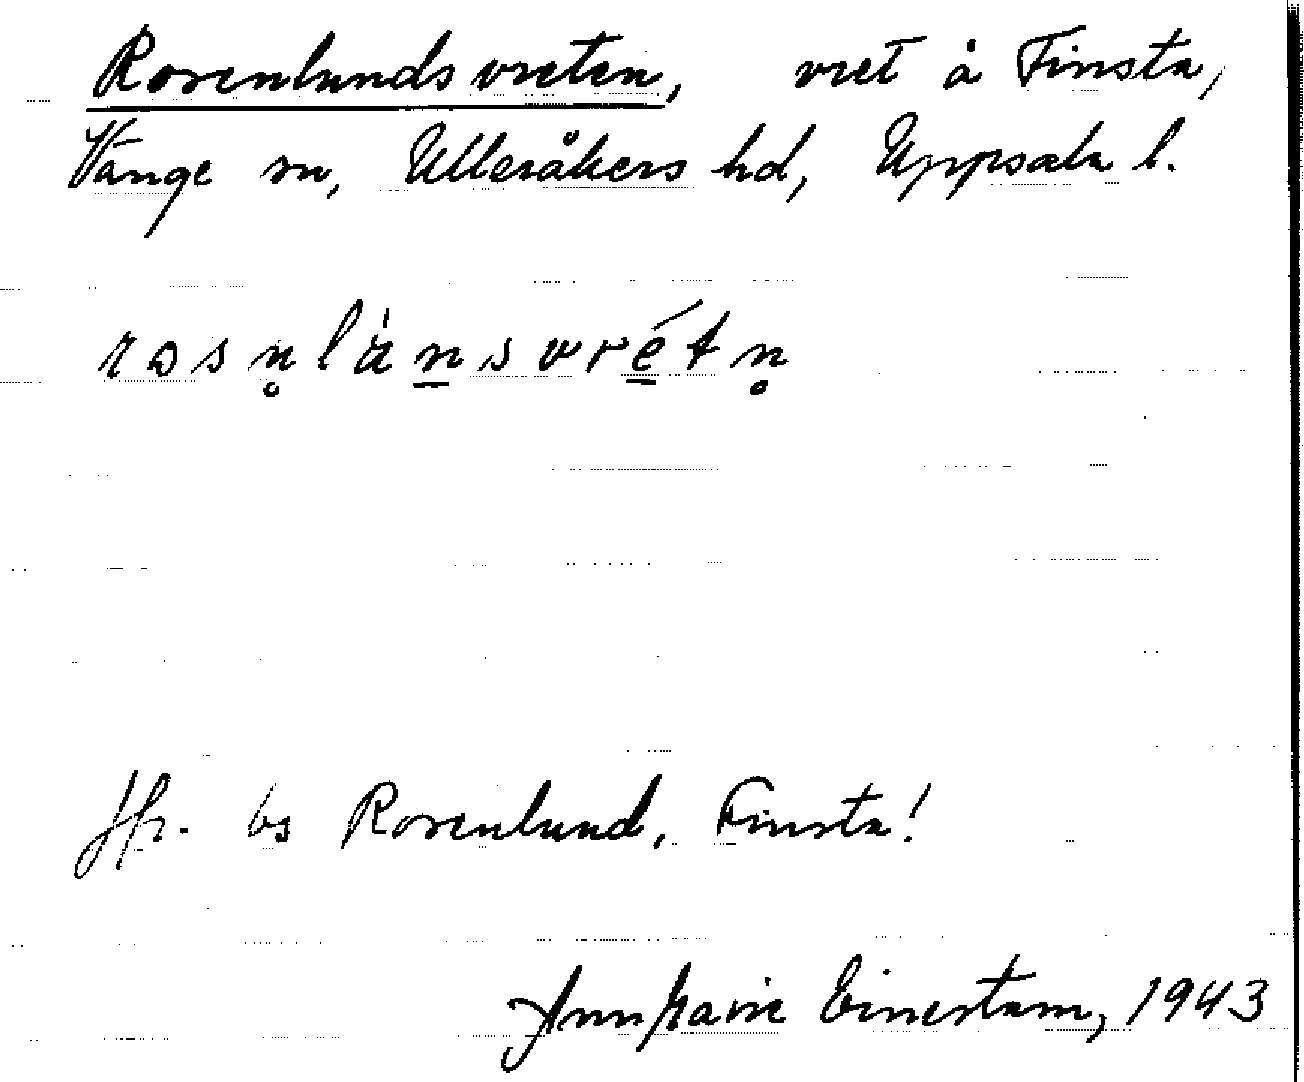 Rosenlundsvreten, vret å Finsta,
Vänge sn, Ulleråkers hd, Uppsala l.
rosn̥làn̠svré̠tn̥
Jfr. bs Rosenlund, Finsta!
Einestam, 1943